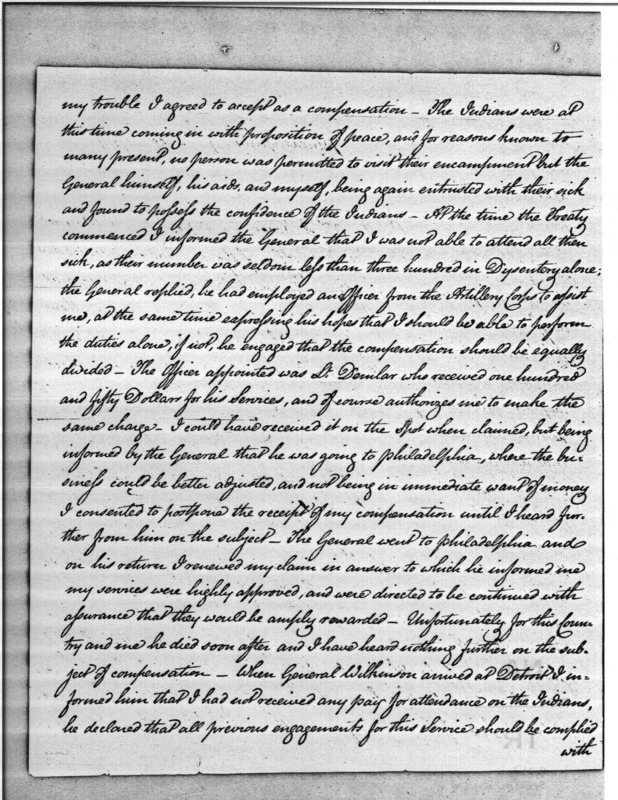 my trouble I agreed to accept as a compensation – The Indians were at
this time coming in with proposition of peace, and for reasons known to
many present, no person was permitted to visit their encampment but the
General himself, his aids, and myself, being again entrusted with their sick
and found to possess the confidence of the Indians – At the time the Treaty
commenced I informed the General that I was not able to attend all their
sick, as their number was seldom less than three hundred in Dysentery alone;
the General replied, he had employed an Officer from the Artillery Corps to assist
me, at the same time expressing his hopes that I should be able to perform
the duties alone, if not, he engaged that the compensation should be equally
divided – The Officer appointed was Lt. who received one hundred
and fifty Dollars for his Services, and of course authorizes me to make the
same charge – I could have received it on the spot when claimed, but being
informed by the General that he was going to Philadelphia, where the bu-
siness could be better adjusted, and not being in immediate want of money
I consented to postpone the receipt of my compensation until I heard fur-
ther from him on the subject – The General went to Philadelphia and
on his return I renewed my claim in answer to which he informed me
my services were highly approved, and were directed to be continued with
assurance that they would be amply rewarded – Unfortunately for this Coun-
try and me he died soon after and I have heard nothing further on the sub-
ject of compensation – When General Wilkinson arrived at Detroit I in-
formed him that I had not received any pay for attendance on the Indians,
he declared that all previous engagements for this Service should be complied
with